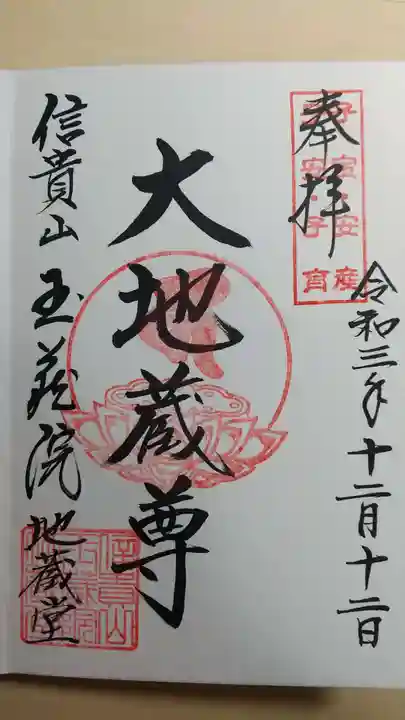 奉拝
子宝安産
安子育
令和三年十二月十二日
大地蔵尊
信貴山玉蔵院地蔵堂
信貴山